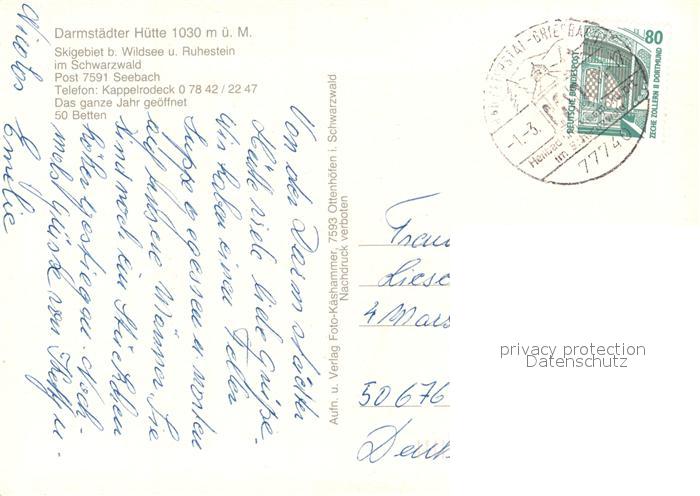 Darmstädter Hütte 1030 m ü. M.
Skigebiet b. Wildsee u. Ruhestein
im Schwarzwald
Post 7591 Seebach
Telefon: Kappelrodeck 0 78 42 / 22 47
Das ganze Jahr geöffnet
50 Betten
Von der Darmstädter
Hütte viele liebe Grüße.
Wir haben einen Teller
Suppe gegessen u. warten
auf unsere Männer. Sie
sind noch ein Stückchen
höher gestiegen. Noch-
mals Grüße von
Emelie
Nicolas
Aufn. u. Verlag Foto-Käshammer, 7593 Ottenhöfen i. Schwarzwald
Nachdruck verboten
80
DEUTSCHE BUNDESPOST
ZECHE ZOLLERN II DORTMUND
-1.-3.
77740
Frau
Liese
50676
privacy protection
Datenschutz